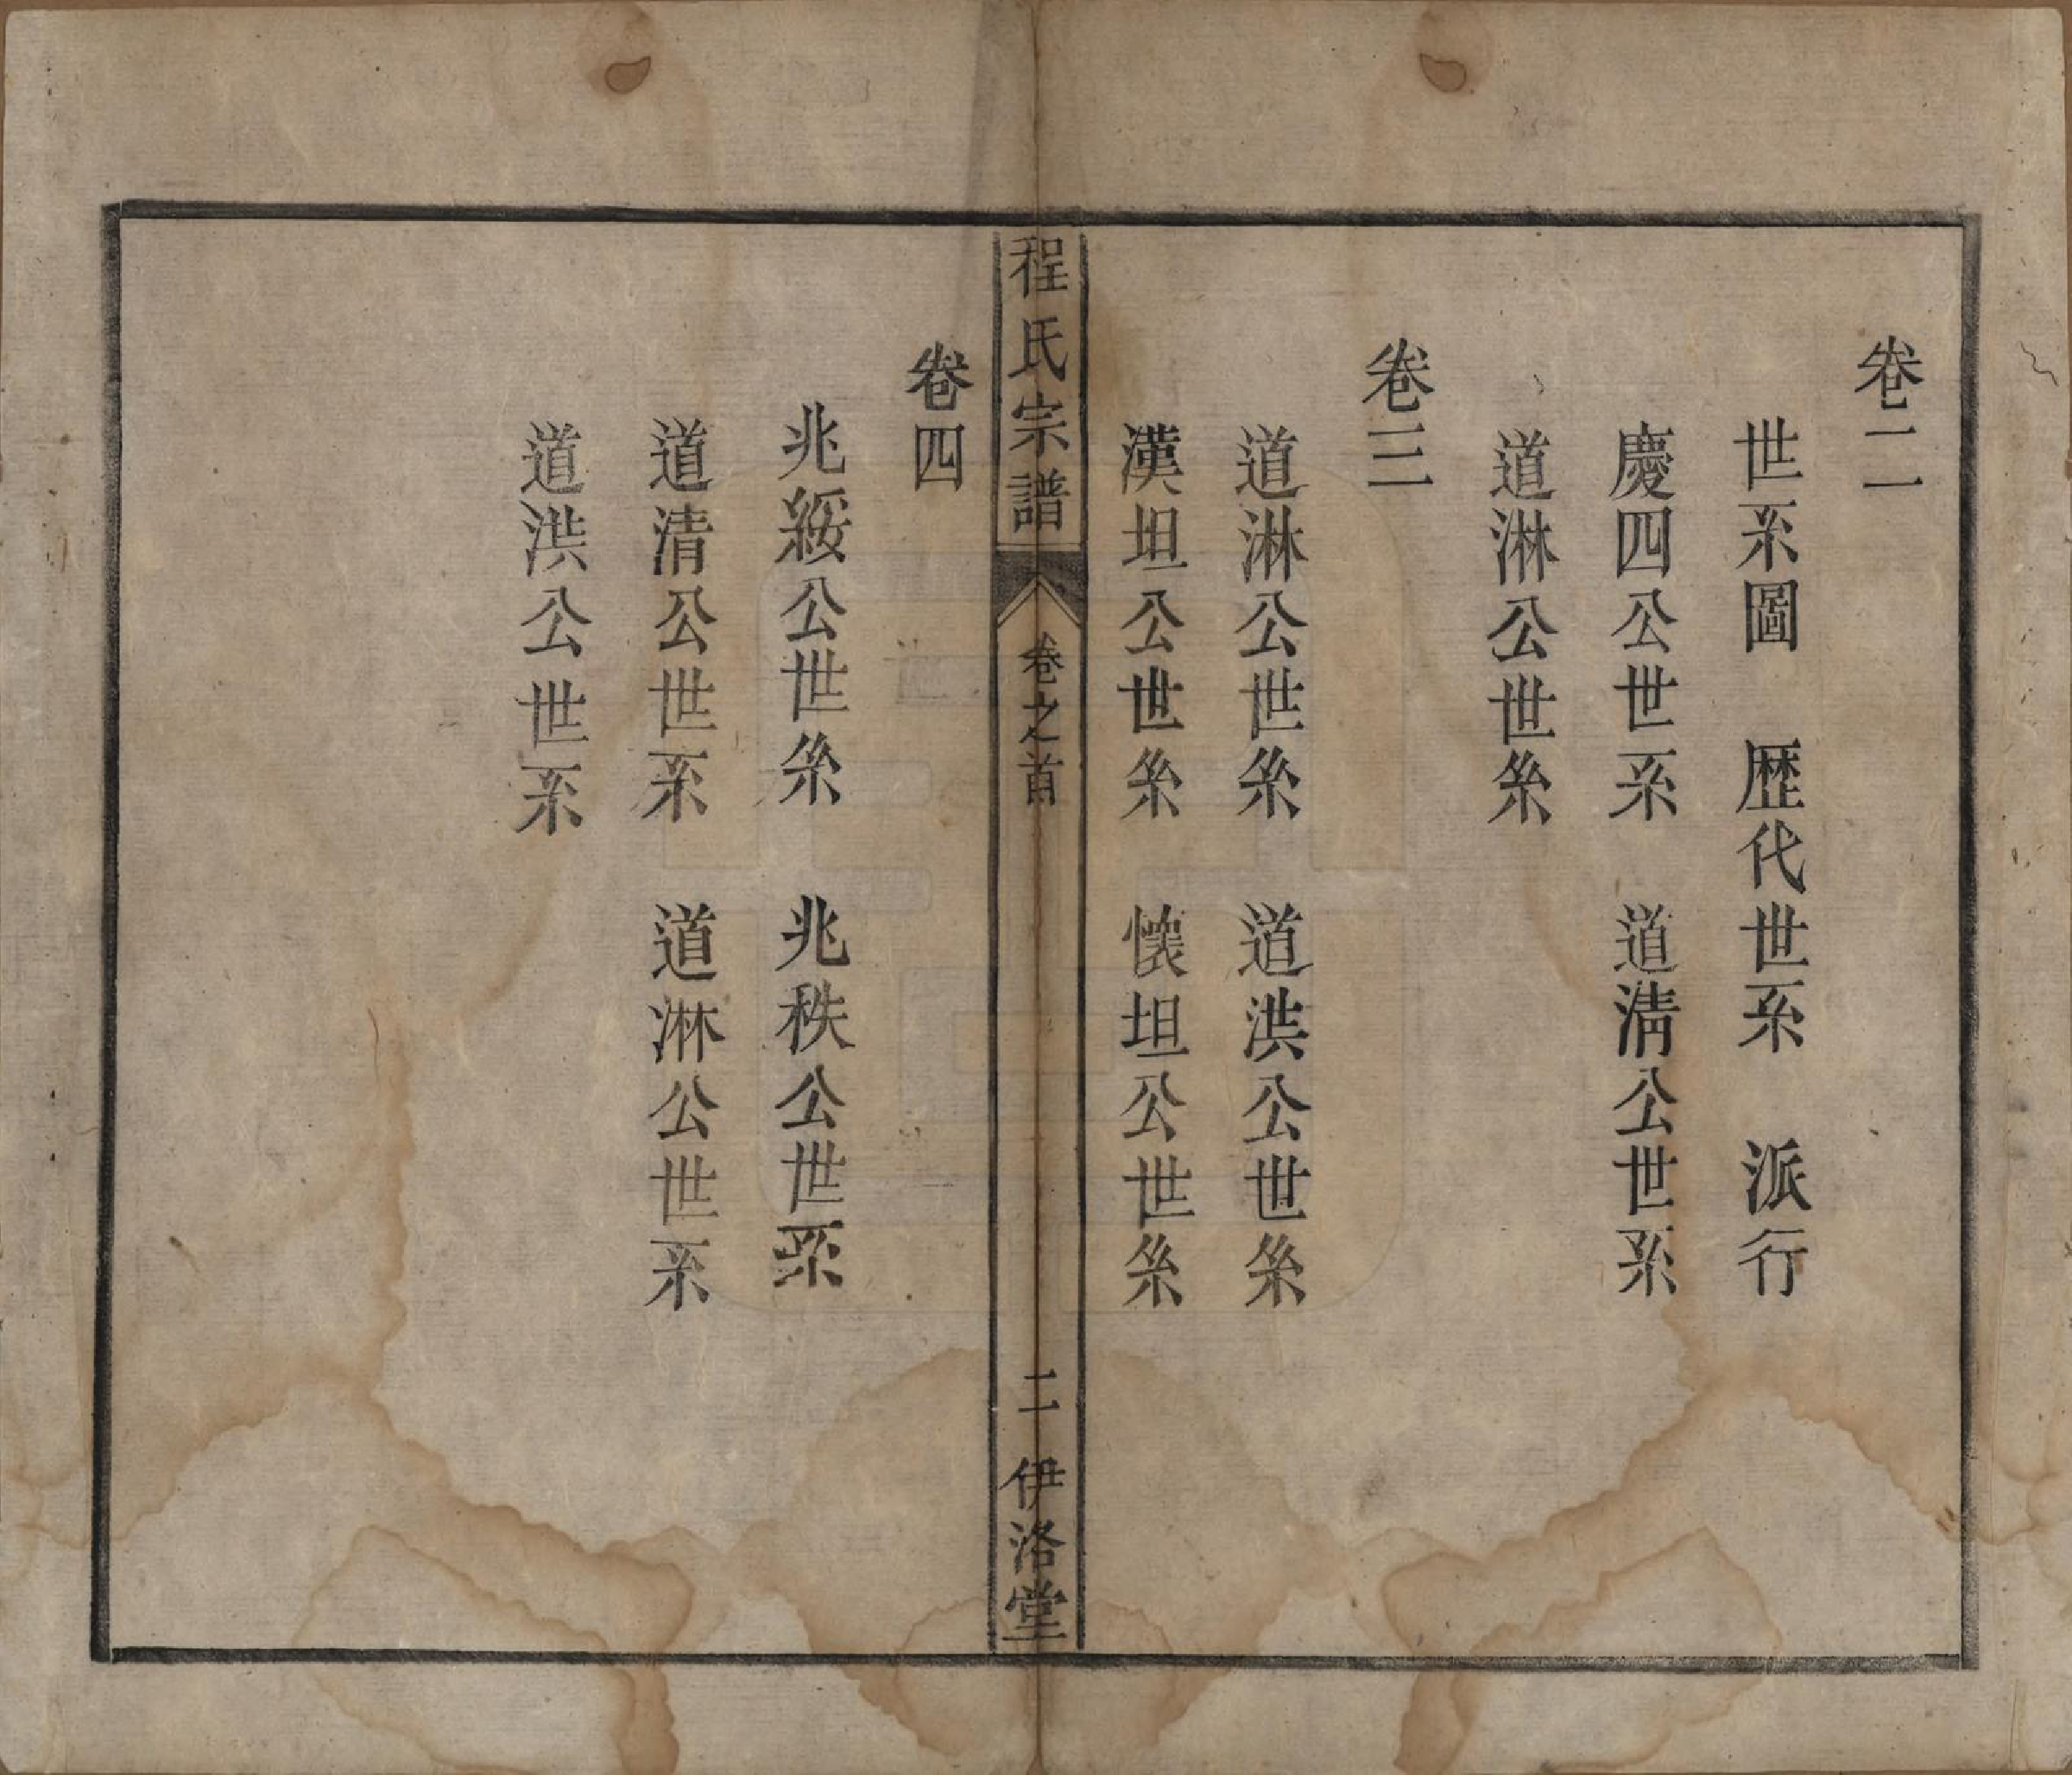 卷二
世系圖　歴代世系　派行
慶四公世系　道清公世系
道淋公世系
卷三
道淋公世系　道洪公世系
漢坦公世系　懷坦公世系
程氏宗譜　卷之首　二　伊洛堂
卷四
兆綏公世系　兆秩公世系
道清公世系　道淋公世系
道洪公世系